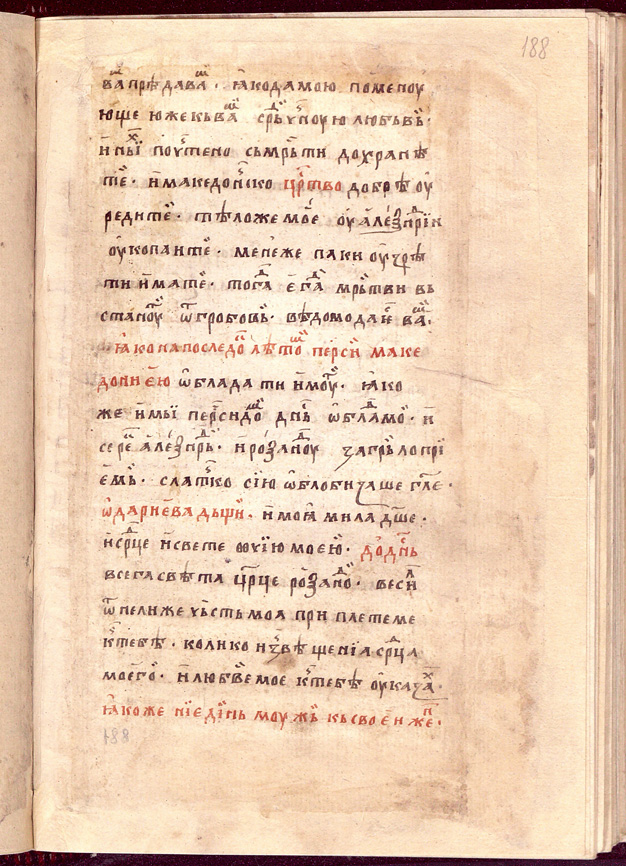 188
ва҇ прѣдава҇ · ꙗко да мою поменоу
юще юже къ ва҇ срⷣьчноую любьвь ·
и ны҇ поч҇тено съмрьти дохранѣ
те · и македонⷭско црⷭ҇тво добрѣ оу
редите · тѣло же мое оу алеѯⷣнрїи
оукопаите · мене же паки оу҇зрѣ
ти имате · тогⷣа егⷣа мрьтви въ
станоуⷮ ѿ гробовь · вѣдомо да е҇ ваⷨ ·
ꙗко на последⷪ лѣтоⷨ перси маке
донїею ѡбладати имоуⷮ · ꙗко
же и мы персидоⷨ днⷭ҇ь ѡблаⷣамо · и
сеⷬе алеѯⷣнрь · и роѯанⷣоу загрьло прї
емь · слатⷦо сїю ѡблобизаше гл҃е ·
ѡ дарїева дьщи · и моꙗ мила дш҃е ·
и срⷣце и свете ѡчїю моею · до днⷭ҇ь
всега свѣта црⷭ҇це роѯанⷣо · весиⷧ
ѿнелиже чьсть моя приплете ме
к тебѣ · колико извѣщенїа срⷣца
моего · и любве мое к тебѣ оуказаⷯ ·
ꙗкоже нїедїнь моужь къ своеи жеⷩ ·
188